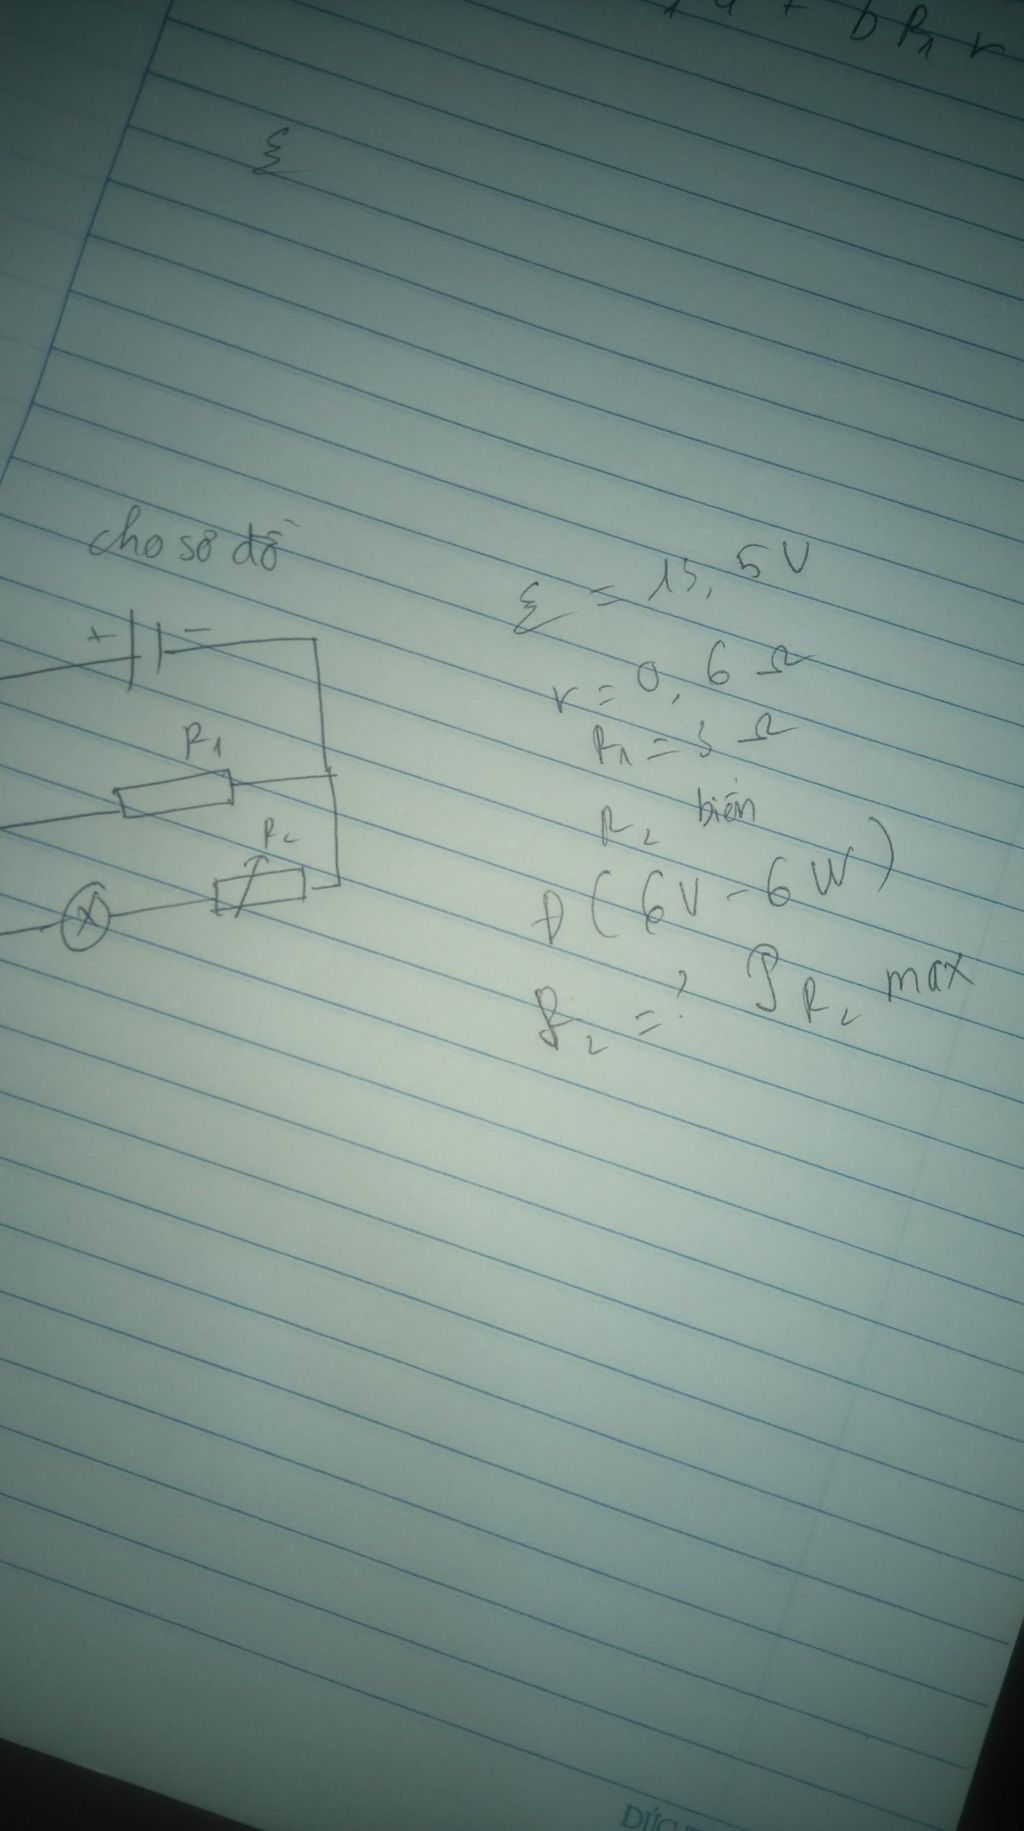 b R₁ r
ξ
cho sơ đồ
+ -
R₁
R₂
X
ξ = 13,5V
r = 0,6 Ω
R₁ = 3 Ω
R₂ biến
Đ (6V - 6W)
R₂ = ? P R₂ max